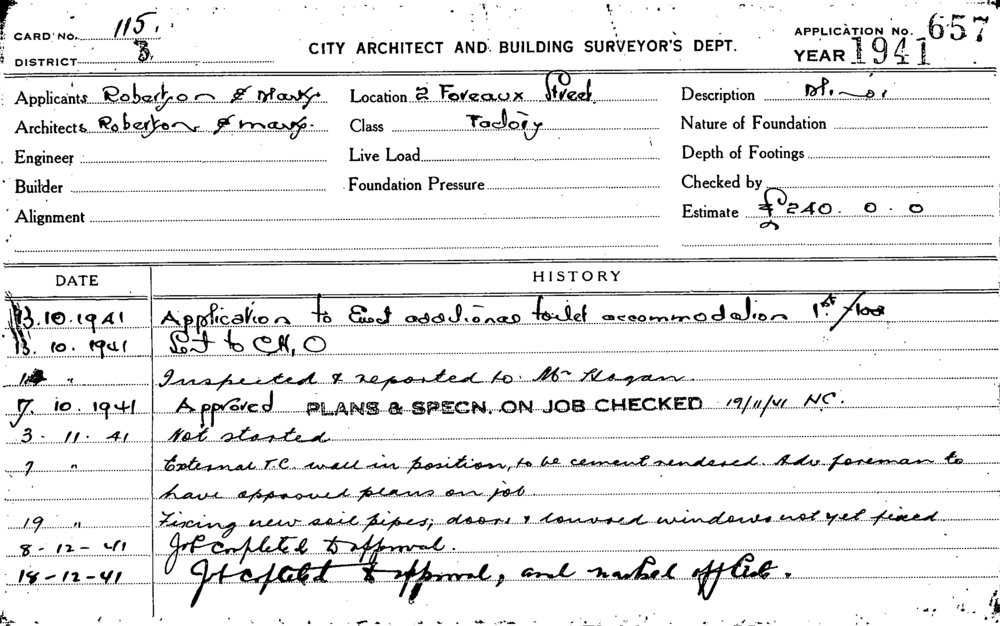 CARD No. 115.
DISTRICT 3.
CITY ARCHITECT AND BUILDING SURVEYOR'S DEPT.
APPLICATION No. 657
YEAR 1941
Applicants Robertson & Marks
Location 2 Foveaux Street
Description
Architects Robertson & Marks.
Class Factory
Nature of Foundation
Engineer
Live Load
Depth of Footings
Builder
Foundation Pressure
Checked by
Alignment
Estimate £240. 0. 0
DATE HISTORY
13.10.1941 Application to Erect additional toilet accommodation 1st floor
13. 10. 1941 Sent to C.H.O
" Inspected & reported to Mr Hogan.
7. 10. 1941 Approved PLANS & SPECN. ON JOB CHECKED 19/11/41 HC.
3. 11. 41 Not started
7 " External T.C. wall in position, to be cement rendered. Adv foreman to
have approved plans on job.
19 " Fixing new soil pipes; doors & louvred windows not yet fixed
8-12-41 Job completed to approval.
18-12-41 Job completed to approval, and marked off list.